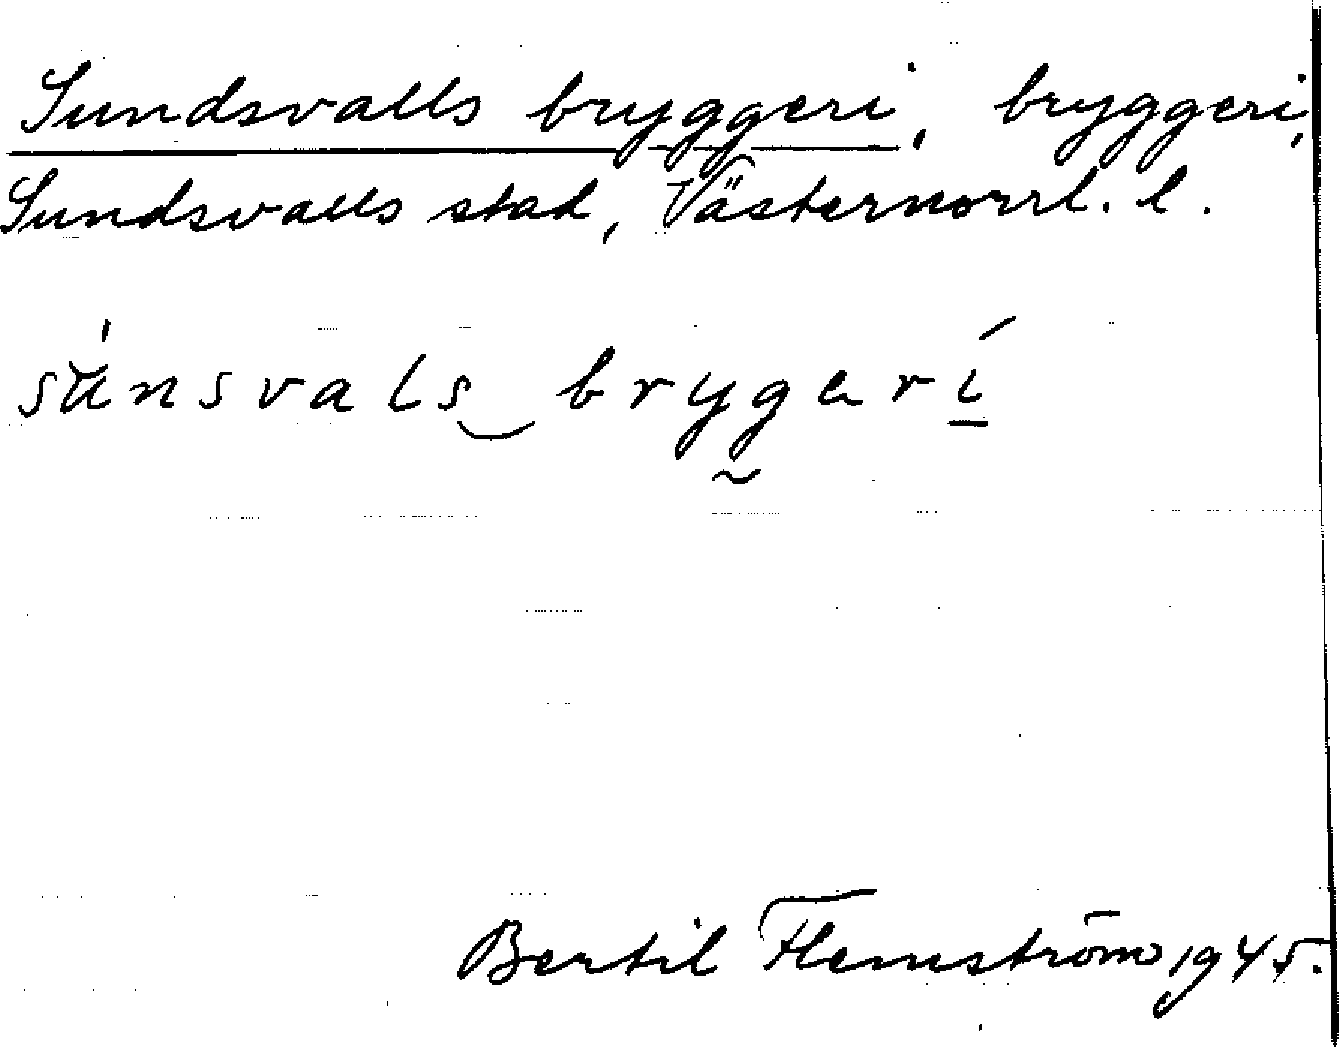 Sundsvalls bryggeri, bryggeri,
Sundsvalls stad, Västernorrl. l.
súnsvals‿brygerí
Bertil Flemström 1945.